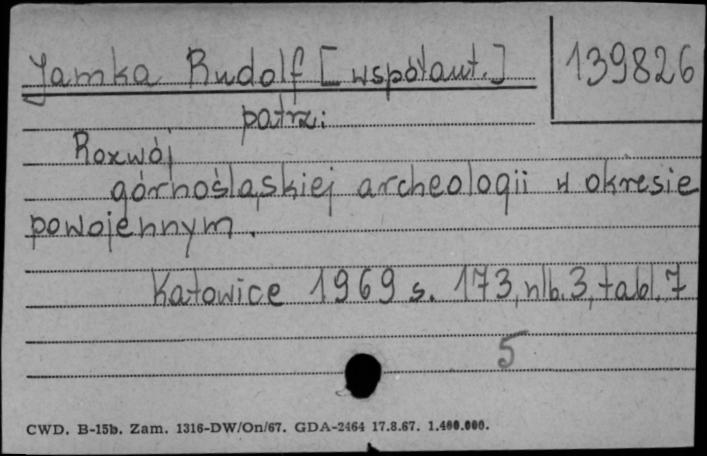 Jamka Rudolf [współaut.]
139826
patrz:
Rozwój
górnośląskiej archeologii w okresie
powojennym.
Katowice 1969 s. 173, nlb. 3, tabl. 7
5
CWD. B-15b. Zam. 1316-DW/On/67. GDA-2464 17.8.67. 1.400.000.